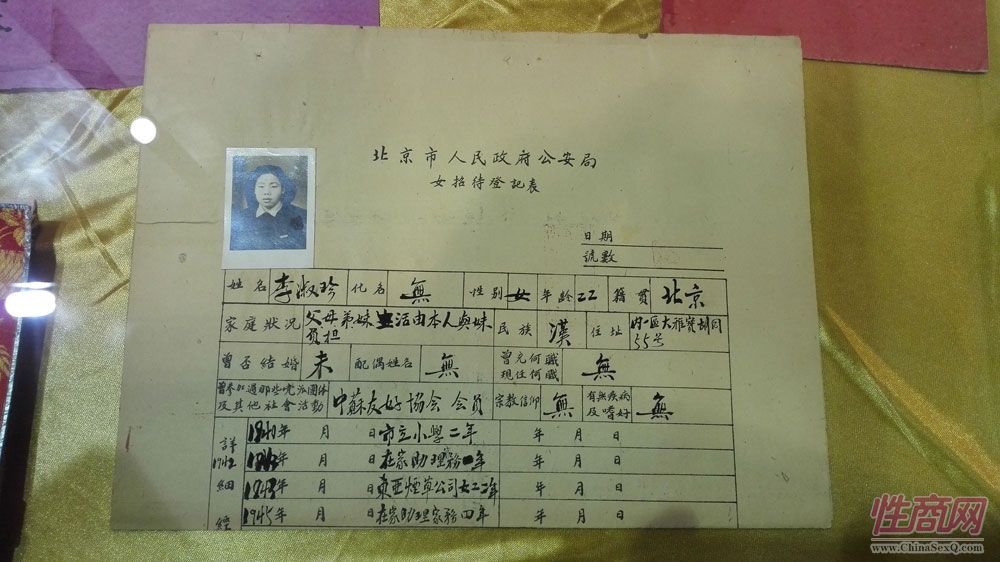 北京市人民政府公安局
女招待登記表
日期
號數
姓名 李淑珍 化名 無 性别 女 年龄 22 籍貫 北京
家庭狀况 父母弟妹生活由本人與妹負担 民族 漢 住址 内一區大雅寶胡同55号
曾否結婚 未 配偶姓名 無 曾充何職 現任何職 無
曾参加過那些党派團体及其他社會活動 中蘇友好協会会員 宗教信仰 無 有無疾病及嗜好 無
詳細經
1940年 月 日 市立小學二年 年 月 日
1942年 月 日 在家助理務 年 年 月 日
1943年 月 日 東亚煙草公司女工 年 年 月 日
1945年 月 日 在家助理家務四年 年 月 日
性商网
www.ChinaSexQ.com